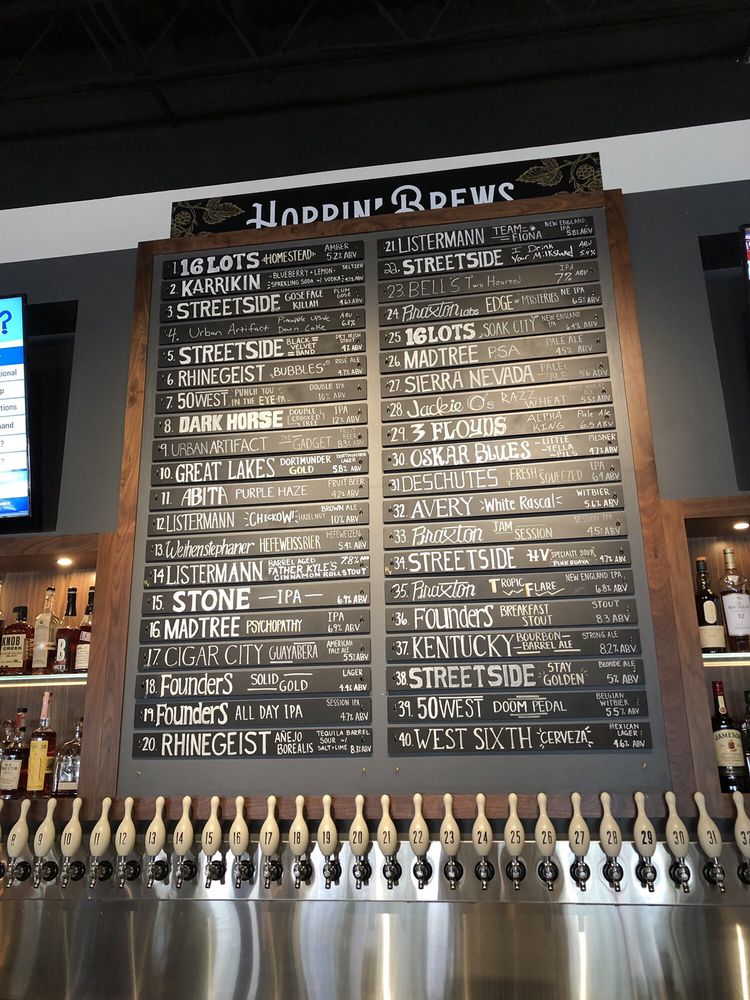 HOPPIN' BREWS
1. 16 LOTS HOMESTEAD AMBER 5.2% ABV
2. KARRIKIN BLUEBERRY-LEMON- SPARKLING SODA w/ VODKA SELTZER ABV
3. STREETSIDE GOSEFACE KILLAH PLUM GOSE 4.6% ABV
4. Urban Artifact Pineapple Upside Down Cake ALE ABV
5. STREETSIDE BLACK VELVET BAND DRY IRISH STOUT 4% ABV
6. RHINEGEIST BUBBLES ROSÉ ALE 4.7% ABV
7. 50WEST PUNCH YOU IN THE EYE-PA DOUBLE IPA 10% ABV
8. DARK HORSE DOUBLE CROOKED TREE IPA 12% ABV
9. URBAN ARTIFACT THE GADGET BEER ABV
10. GREAT LAKES DORTMUNDER GOLD DORTMUNDER LAGER 5.8% ABV
11. ABITA PURPLE HAZE FRUIT BEER 4.2% ABV
12. LISTERMANN CHICKOW! HAZELNUT BROWN ALE 10% ABV
13. Weihenstephaner HEFEWEISSBIER HEFEWEIZEN 5.4% ABV
14. LISTERMANN BARREL AGED FATHER KYLE'S CINNAMON ROLL STOUT 7.8% ABV
15. STONE —IPA— 6.9% ABV
16. MADTREE PSYCHOPATHY IPA 6.9% ABV
17. CIGAR CITY GUAYABERA AMERICAN PALE ALE 5.5% ABV
18. FOUNDERS SOLID GOLD LAGER 4.4% ABV
19. FOUNDERS ALL DAY IPA SESSION IPA 4.7% ABV
20. RHINEGEIST AÑEJO BOREALIS TEQUILA BARREL SOUR w/ SALT+LIME 8.1% ABV
21. LISTERMANN TEAM FIONA NEW ENGLAND IPA 5.8% ABV
22. STREETSIDE I Drink Your Milkshake! ABV 5.4%
23. BELL'S Two Hearted IPA 7% ABV
24. Braxton Labs EDGE OF MYSTERIES NE IPA 6.5% ABV
25. 16 LOTS SOAK CITY NEW ENGLAND IPA 6.4% ABV
26. MADTREE PSA PALE ALE 4.5% ABV
27. SIERRA NEVADA PALE ALE 5.6% ABV
28. Jackie O's RAZZ WHEAT 5.5% ABV
29. 3 FLOYDS ALPHA KING Pale Ale 6.5 ABV
30. OSKAR BLUES LITTLE YELLA PILS PILSNER 4.7% ABV
31. DESCHUTES FRESH SQUEEZED IPA 6.4 ABV
32. AVERY White Rascal WITBIER 5.6% ABV
33. Braxton JAM SESSION SESSION IPA 4.5% ABV
34. STREETSIDE HV SPECIALTY SOUR PINK GUAVA 4.7% ABV
35. Braxton TROPIC FLARE NEW ENGLAND IPA 6.8% ABV
36. FOUNDERS BREAKFAST STOUT STOUT 8.3 ABV
37. KENTUCKY BOURBON BARREL ALE STRONG ALE 8.2% ABV
38. STREETSIDE STAY GOLDEN BLONDE ALE 5% ABV
39. 50WEST DOOM PEDAL BELGIAN WITBIER 5.5% ABV
40. WEST SIXTH CERVEZA MEXICAN LAGER 4.6% ABV
?
KNOB CREEK
JAMESON
8 9 10 11 12 13 14 15 16 17 18 19 20 21 22 23 24 25 26 27 28 29 30 31 32